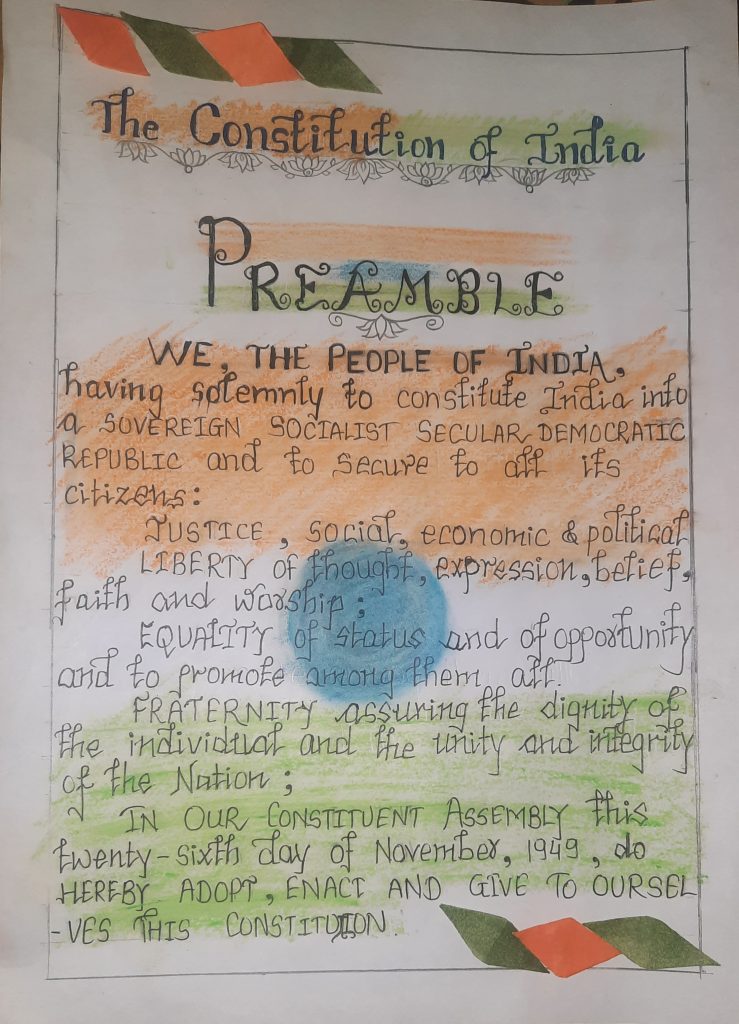 The Constitution of India
PREAMBLE
WE, THE PEOPLE OF INDIA,
having solemnly to constitute India into
a SOVEREIGN SOCIALIST SECULAR DEMOCRATIC
REPUBLIC and to secure to all its
citizens:
JUSTICE, social, economic & political
LIBERTY of thought, expression, belief,
faith and worship;
EQUALITY of status and of opportunity
and to promote among them all.
FRATERNITY assuring the dignity of
the individual and the unity and integrity
of the Nation;
IN OUR CONSTITUENT ASSEMBLY this
twenty-sixth day of November, 1949, do
HEREBY ADOPT, ENACT AND GIVE TO OURSEL
-VES THIS CONSTITUTION.